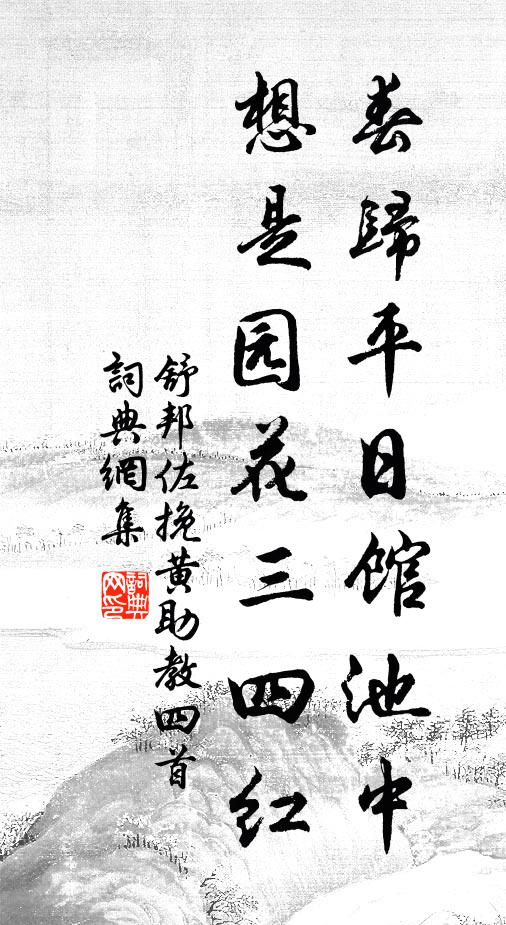 春歸平日馆池中
想是园花三四红
舒邦佐挽黄助教四首
詞典網集
詞典
网印